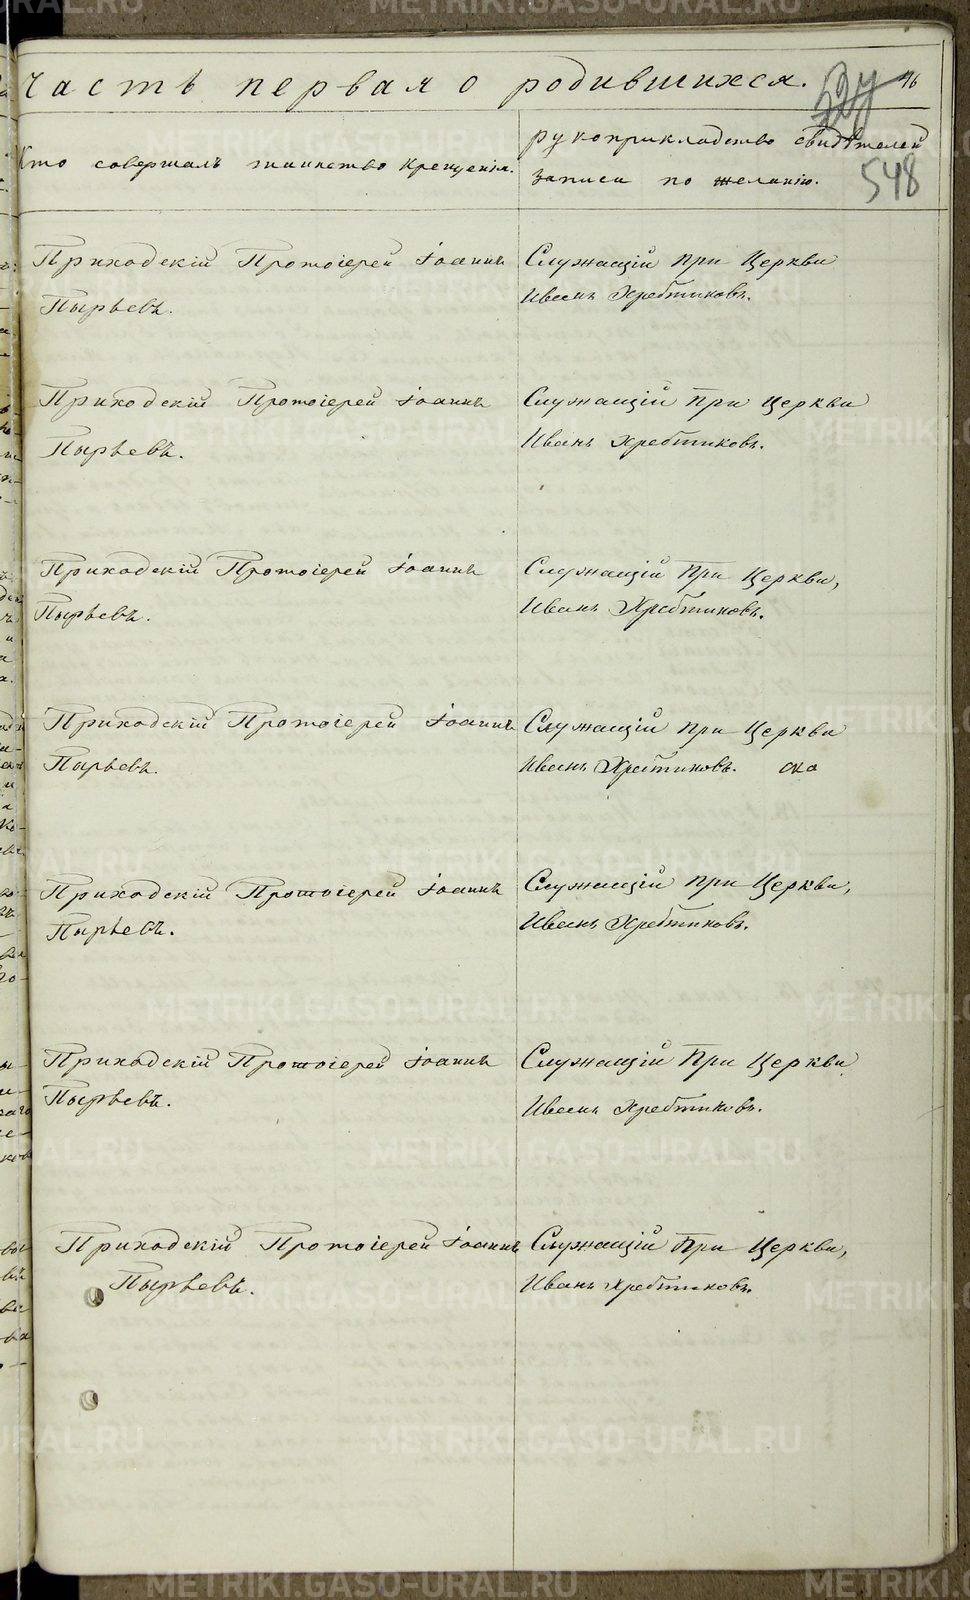 часть первая о родившихся. 76
548
Кто совершалъ таинство крещенія.
рукоприкладство свидѣтелей
записи по желанію.
Приходскій Протоіерей Іоаннъ
Пырьевъ.
Служащій при Церкви
Иванъ Хребтиковъ.
Приходскій Протоіерей Іоаннъ
Пырьевъ.
Служащій при церкви
Иванъ Хребтиковъ.
Приходскій Протоіерей Іоаннъ
Пырьевъ.
Служащій при Церкви,
Иванъ Хребтиковъ.
Приходскій Протоіерей Іоаннъ
Пырьевъ.
Служащій при Церкви
Иванъ Хребтиковъ.
Приходскій Протоіерей Іоаннъ
Пырьевъ.
Служащій при Церкви,
Иванъ Хребтиковъ.
Приходскій Протоіерей Іоаннъ
Пырьевъ.
Служащій при Церкви
Иванъ Хребтиковъ.
Приходскій Протоіерей Іоаннъ
Пырьевъ.
Служащій при Церкви,
Иванъ Хребтиковъ.
METRIKI.GASO-URAL.RU